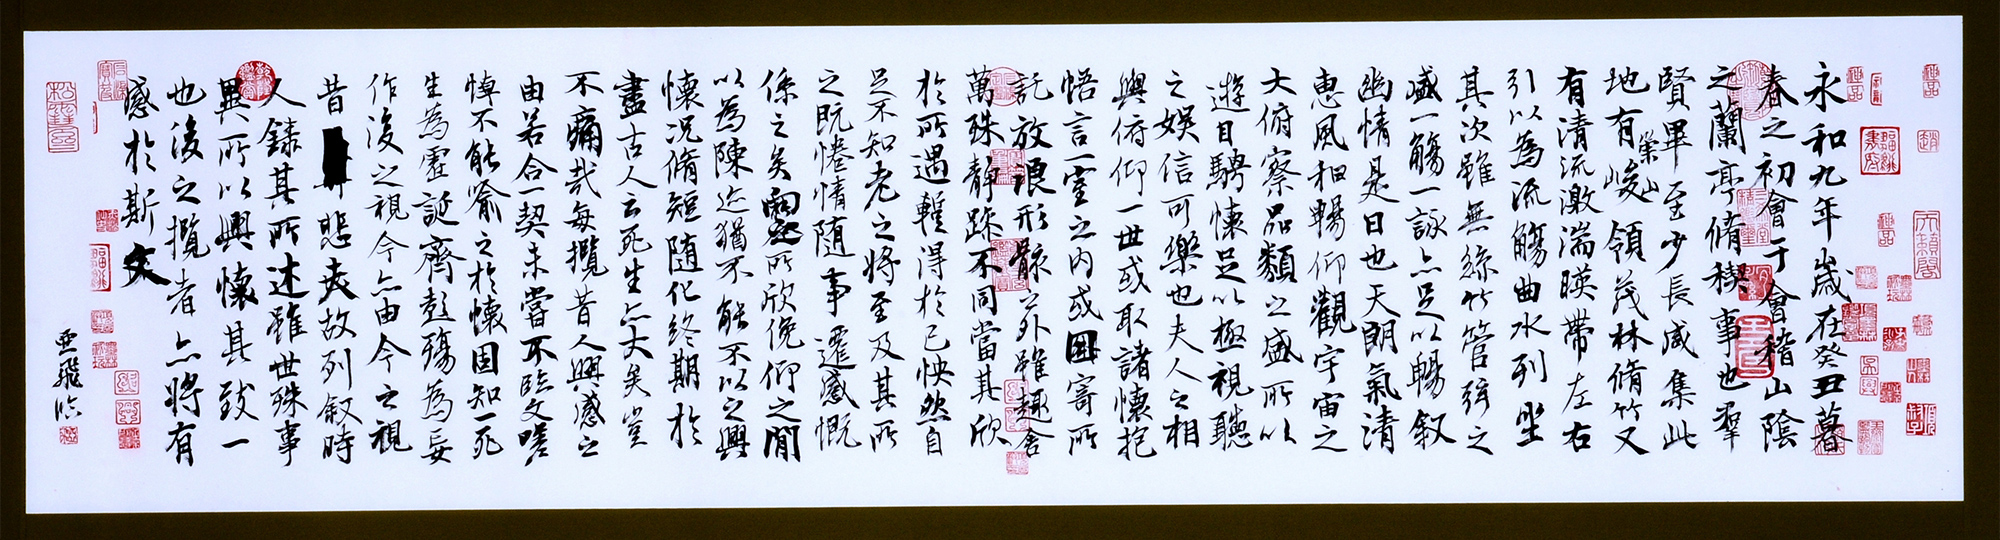 永和九年歲在癸丑暮
春之初會于會稽山陰
之蘭亭脩稧事也羣
賢畢至少長咸集此
地有崇山峻領茂林脩竹又
有清流激湍暎帶左右
引以為流觴曲水列坐
其次雖無絲竹管弦之
盛一觴一詠亦足以暢叙
幽情是日也天朗氣清
惠風和暢仰觀宇宙之
大俯察品類之盛所以
遊目騁懷足以極視聽
之娛信可樂也夫人之相
與俯仰一世或取諸懷抱
悟言一室之內或因寄所
託放浪形骸之外雖趣舍
萬殊靜躁不同當其欣
於所遇輒得於己怏然自
足不知老之將至及其所
之既惓情随事遷感慨
係之矣向之所欣俛仰之閒
以為陳迹猶不能不以之興
懷況脩短随化終期於
盡古人云死生亦大矣豈
不痛哉每攬昔人興感之
由若合一契未嘗不臨文嗟
悼不能喻之於懷固知一死
生為虛誕齊彭殤為妄
作後之視今亦由今之視
昔悲夫故列叙時
人錄其所述雖世殊事
異所以興懷其致一
也後之攬者亦將有
感於斯文
亞飛臨